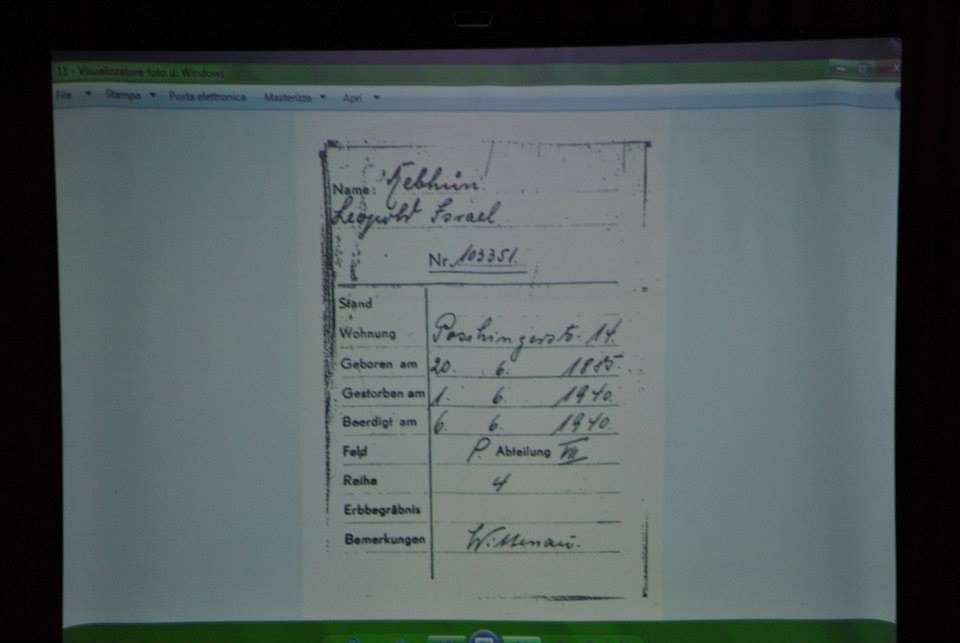 11 - Visualizzatore foto di Windows
File Stampa Posta elettronica Masterizza Apri
Name: Rebhun
Leopold Israel
Nr. 103351.
Stand
Wohnung Poschingerstr. 14.
Geboren am 20. 6. 1885.
Gestorben am 1. 6. 1940.
Beerdigt am 6. 6. 1940.
Feld P. Abteilung VII
Reihe 4
Erbbegräbnis
Bemerkungen Wittenau.